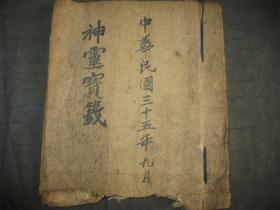 中華民國三十五年九月
神靈寶籤